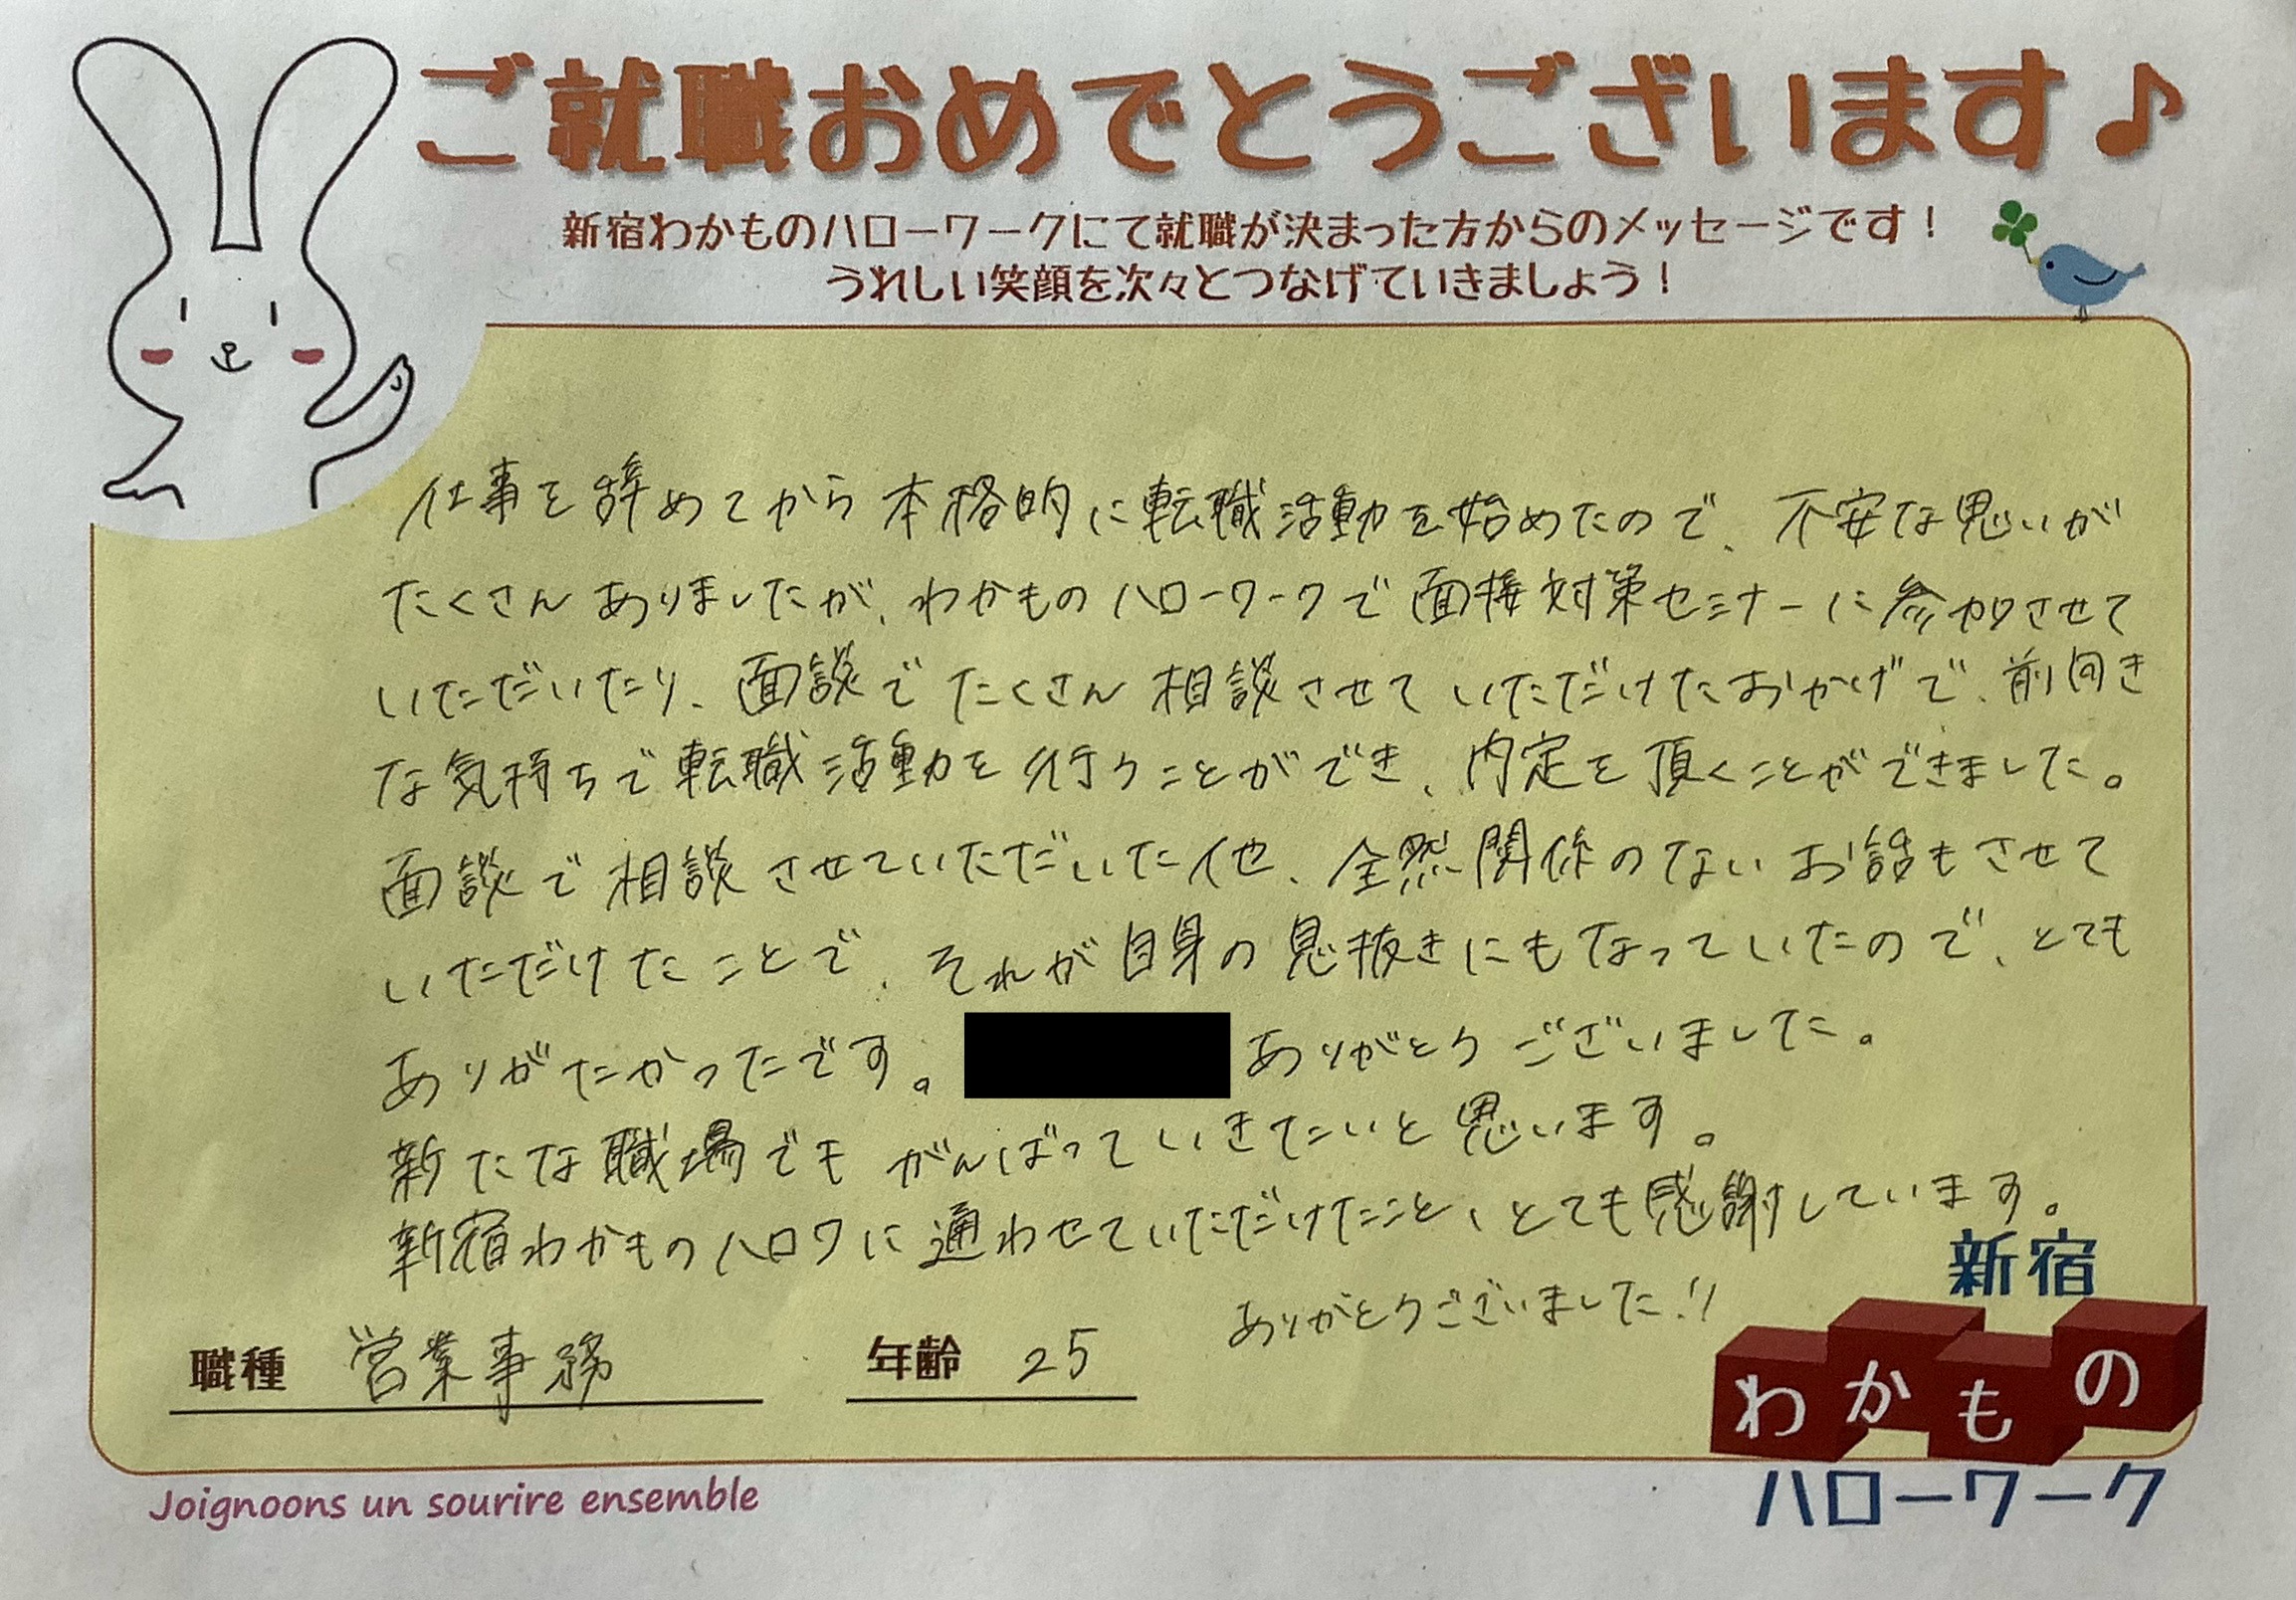 ご就職おめでとうございます♪
新宿わかものハローワークにて就職が決まった方からのメッセージです！
うれしい笑顔を次々とつなげていきましょう！
仕事を辞めてから本格的に転職活動を始めたので、不安な思いが
たくさんありましたが、わかものハローワークで面接対策セミナーに参加させて
いただいたり、面談でたくさん相談させていただけたおかげで、前向き
な気持ちで転職活動を行うことができ、内定を頂くことができました。
面談で相談させていただいた他、全然関係のないお話もさせて
いただけたことで、それが自身の息抜きにもなっていたので、とても
ありがたかったです。ありがとうございました。
新たな職場でもがんばっていきたいと思います。
新宿わかものハロワに通わせていただけたこと、とても感謝しています。
ありがとうございました!!
職種 営業事務
年齢 25
新宿
わかもの
ハローワーク
Joignoons un sourire ensemble